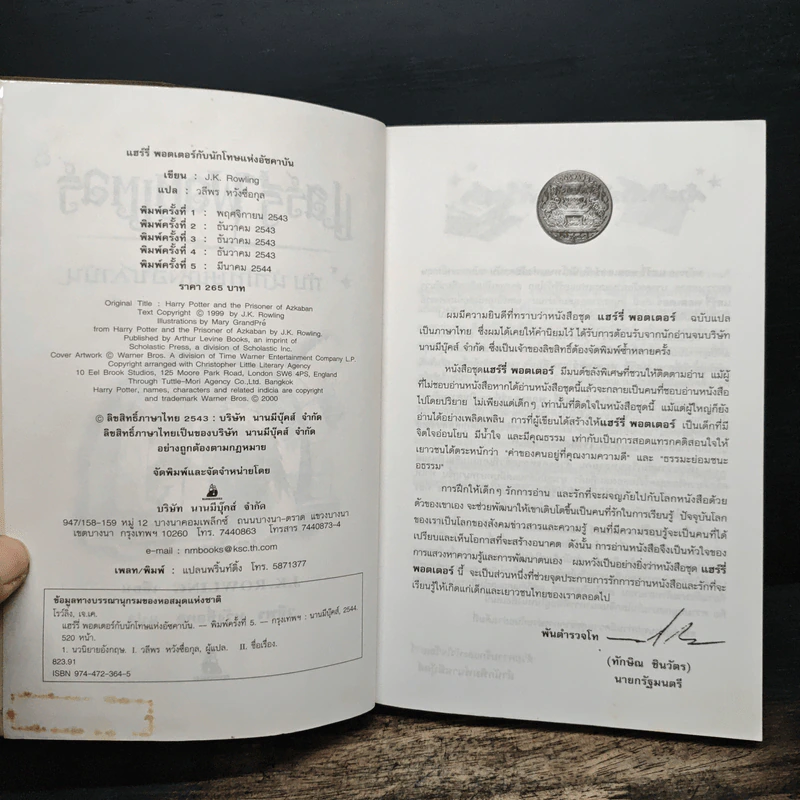 แฮร์รี่ พอตเตอร์กับนักโทษแห่งอัซคาบัน
เขียน : J.K. Rowling
แปล : วลีพร หวังซื่อกุล
พิมพ์ครั้งที่ 1 : พฤศจิกายน 2543
พิมพ์ครั้งที่ 2 : ธันวาคม 2543
พิมพ์ครั้งที่ 3 : ธันวาคม 2543
พิมพ์ครั้งที่ 4 : ธันวาคม 2543
พิมพ์ครั้งที่ 5 : มีนาคม 2544
ราคา 265 บาท
Original Title : Harry Potter and the Prisoner of Azkaban
Text Copyright © 1999 by J.K. Rowling
Illustrations by Mary GrandPré
from Harry Potter and the Prisoner of Azkaban by J.K. Rowling.
Published by Arthur Levine Books, an imprint of
Scholastic Press, a division of Scholastic Inc.
Cover Artwork © Warner Bros. A division of Time Warner Entertainment Company L.P.
Copyright arranged with Christopher Little Literary Agency
10 Eel Brook Studios, 125 Moore Park Road, London SW6 4PS, England
Through Tuttle-Mori Agency Co., Ltd. Bangkok
Harry Potter, names, characters and related indicia are copyright
and trademark Warner Bros. © 2000
© ลิขสิทธิ์ภาษาไทย 2543 : บริษัท นานมีบุ๊คส์ จำกัด
ลิขสิทธิ์ภาษาไทยเป็นของบริษัท นานมีบุ๊คส์ จำกัด
อย่างถูกต้องตามกฎหมาย
จัดพิมพ์และจัดจำหน่ายโดย
บริษัท นานมีบุ๊กส์ จำกัด
947/158-159 หมู่ 12 บางนาคอมเพล็กซ์ ถนนบางนา-ตราด แขวงบางนา
เขตบางนา กรุงเทพฯ 10260 โทร. 7440863 โทรสาร 7440873-4
e-mail : nmbooks@ksc.th.com
เพลท/พิมพ์ : แปลนพริ้นท์ติ้ง โทร. 5871377
ข้อมูลทางบรรณานุกรมของหอสมุดแห่งชาติ
โรว์ลิ่ง, เจ.เค.
แฮร์รี่ พอตเตอร์กับนักโทษแห่งอัซคาบัน. -- พิมพ์ครั้งที่ 5. -- กรุงเทพฯ : นานมีบุ๊คส์, 2544.
520 หน้า.
1. นวนิยายอังกฤษ. I. วลีพร หวังซื่อกุล, ผู้แปล. II. ชื่อเรื่อง.
823.91
ISBN 974-472-364-5
ผมมีความยินดีที่ทราบว่าหนังสือชุด แฮร์รี่ พอตเตอร์ ฉบับแปล
เป็นภาษาไทย ซึ่งผมได้เคยให้คำนิยมไว้ ได้รับการต้อนรับจากนักอ่านจนบริษัท
นานมีบุ๊คส์ จำกัด ซึ่งเป็นเจ้าของลิขสิทธิ์ต้องจัดพิมพ์ซ้ำหลายครั้ง
หนังสือชุดแฮร์รี่ พอตเตอร์ มีมนต์ขลังพิเศษที่ชวนให้ติดตามอ่าน แม้ผู้
ที่ไม่ชอบอ่านหนังสือหากได้อ่านหนังสือชุดนี้แล้วจะกลายเป็นคนที่ชอบอ่านหนังสือ
ไปโดยปริยาย ไม่เพียงแต่เด็กๆ เท่านั้นที่ติดใจในหนังสือชุดนี้ แม้แต่ผู้ใหญ่ก็ยัง
อ่านได้อย่างเพลิดเพลิน การที่ผู้เขียนได้สร้างให้แฮร์รี่ พอตเตอร์ เป็นเด็กที่มี
จิตใจอ่อนโยน มีน้ำใจ และมีคุณธรรม เท่ากับเป็นการสอดแทรกคติสอนใจให้
เยาวชนได้ตระหนักว่า "ค่าของคนอยู่ที่คุณงามความดี" และ "ธรรมะย่อมชนะ
อธรรม"
การฝึกให้เด็กๆ รักการอ่าน และรักที่จะผจญภัยไปกับโลกหนังสือด้วย
ตัวของเขาเอง จะช่วยพัฒนาให้เขาเติบโตขึ้นเป็นคนที่รักในการเรียนรู้ ปัจจุบันโลก
ของเราเป็นโลกของสังคมข่าวสารและความรู้ คนที่มีความรอบรู้จะเป็นคนที่ได้
เปรียบและเห็นโอกาสที่จะสร้างอนาคต ดังนั้น การอ่านหนังสือจึงเป็นหัวใจของ
การแสวงหาความรู้และการพัฒนาตนเอง ผมหวังเป็นอย่างยิ่งว่าหนังสือชุด แฮร์รี่
พอตเตอร์ นี้ จะเป็นส่วนหนึ่งที่ช่วยจุดประกายการรักการอ่านหนังสือและรักที่จะ
เรียนรู้ให้เกิดแก่เด็กและเยาวชนไทยของเราตลอดไป
พันตำรวจโท
(ทักษิณ ชินวัตร)
นายกรัฐมนตรี